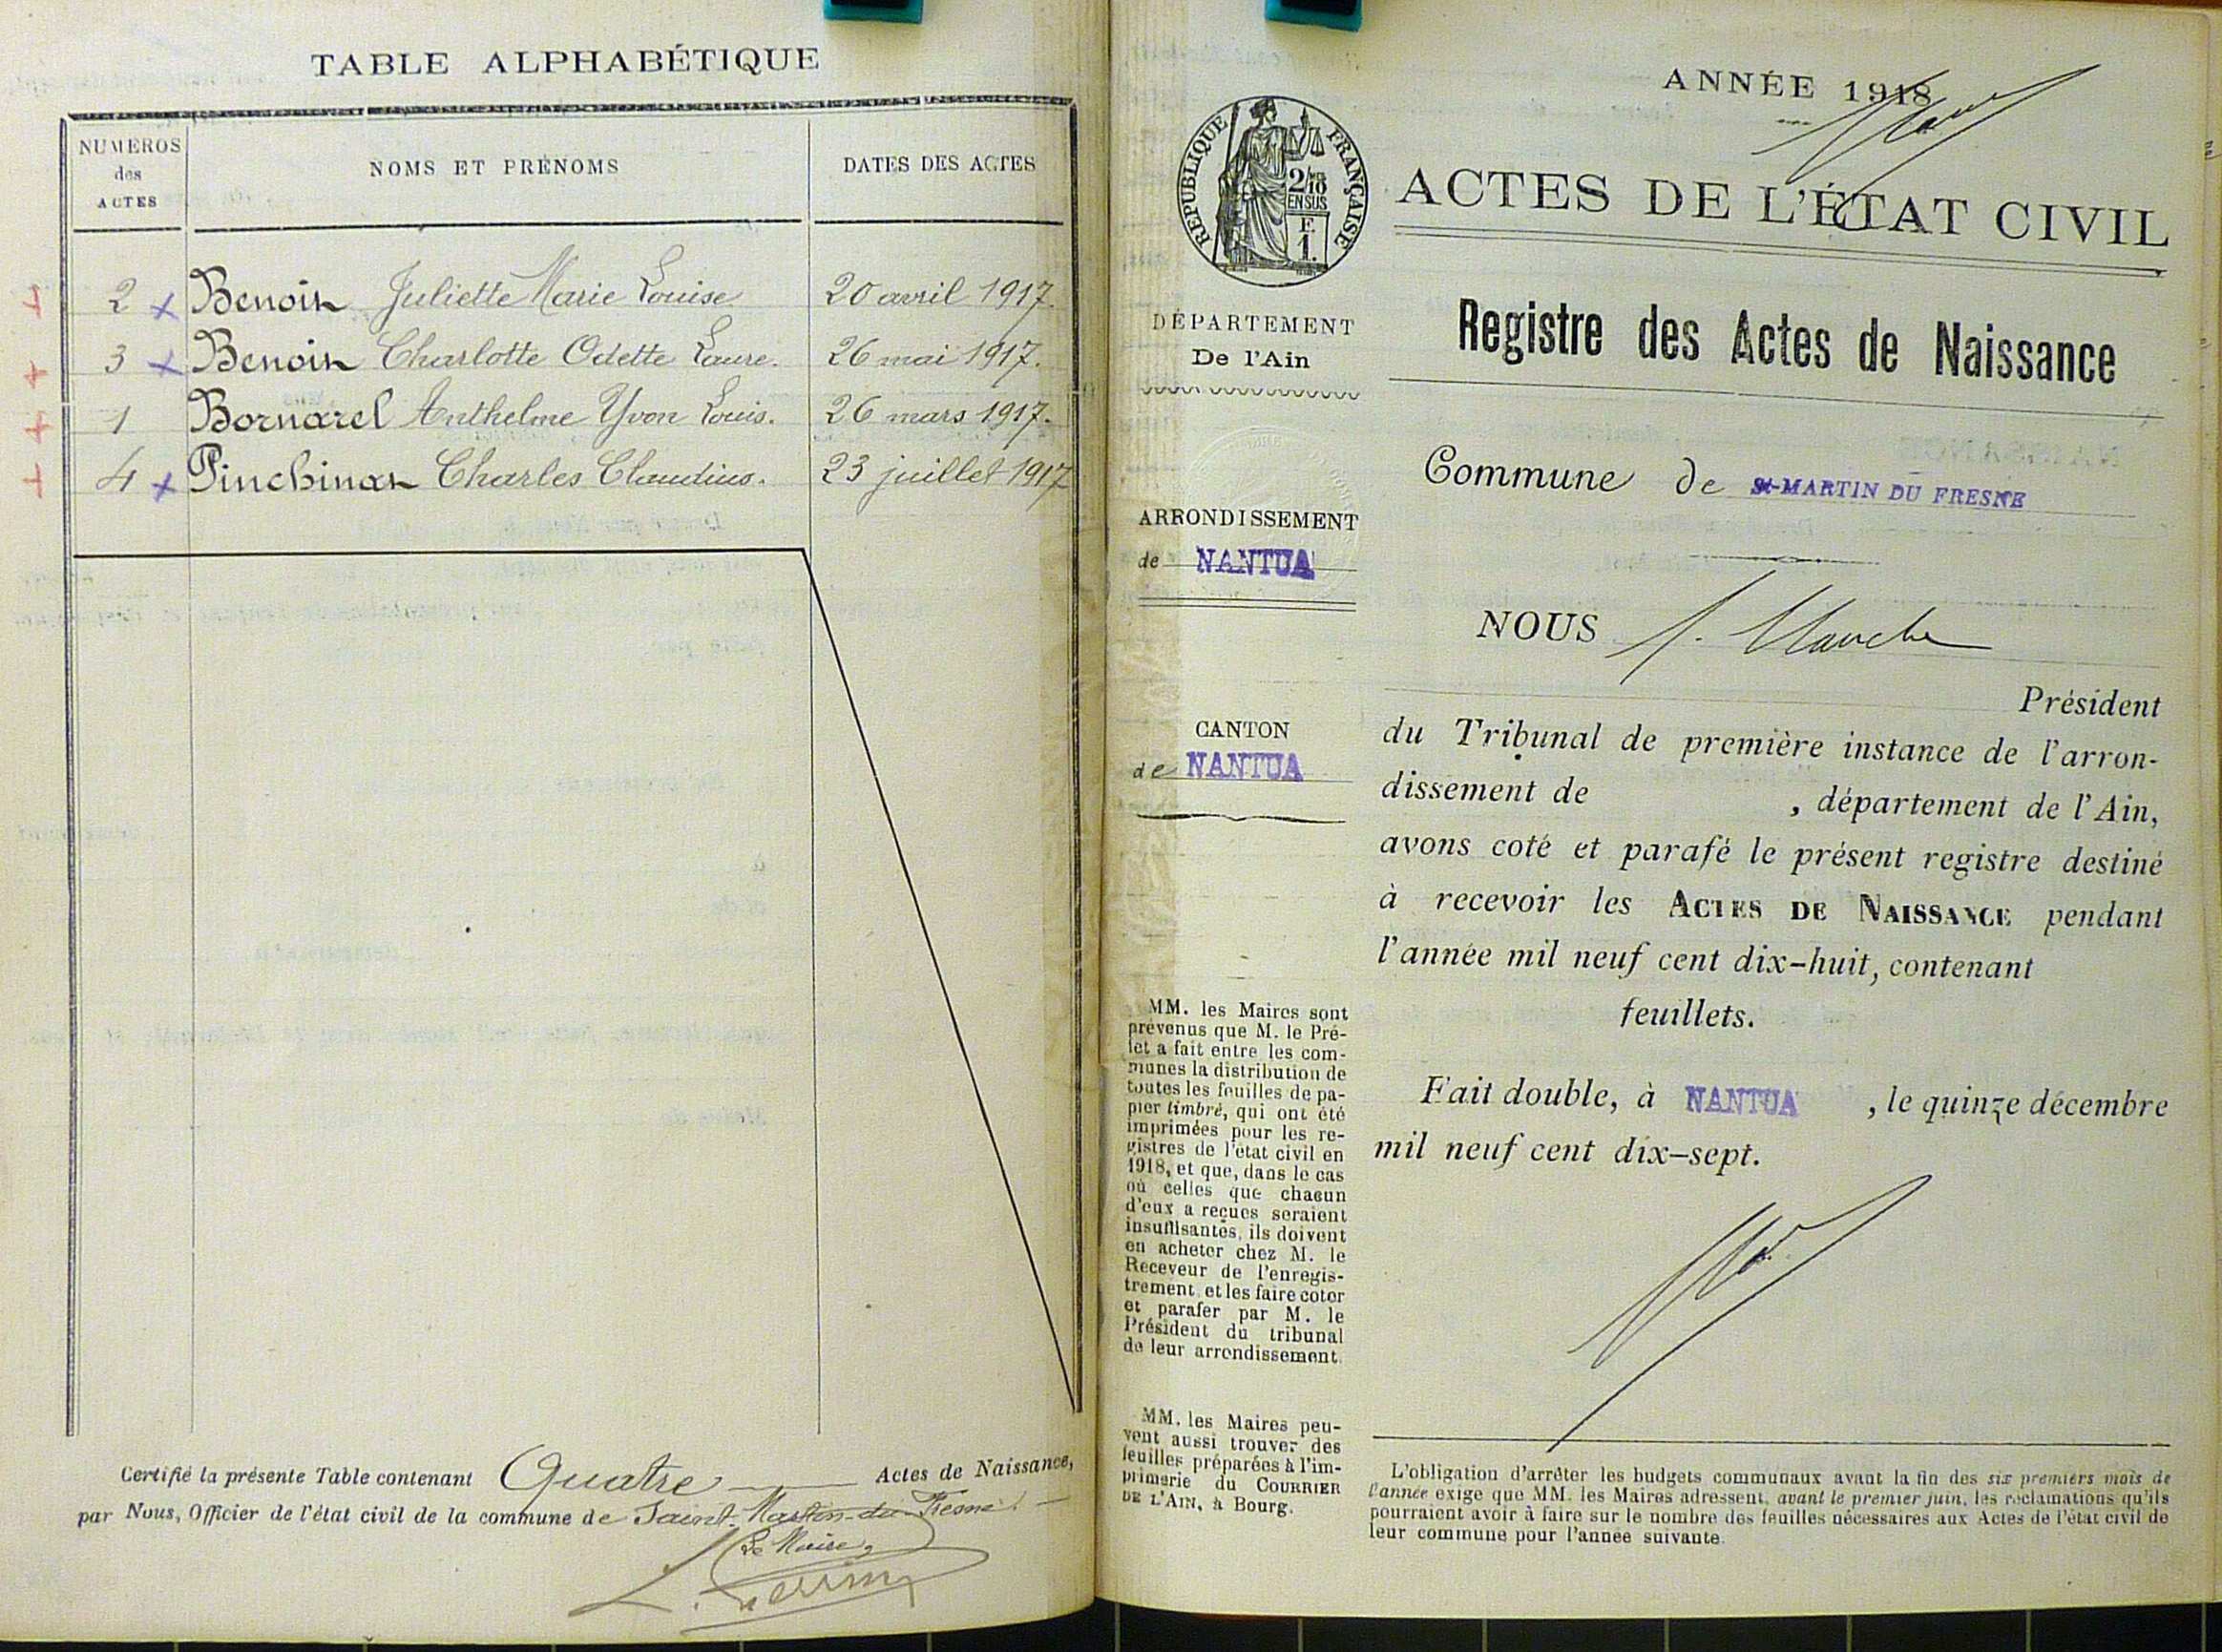 TABLE ALPHABÉTIQUE
NUMÉROS
des
ACTES
NOMS ET PRÉNOMS
DATES DES ACTES
2 Benoit Juliette Marie Louise 20 avril 1917.
3 Benoit Charlotte Odette Laure. 26 mai 1917.
1 Bornarel Anthelme Yvon Louis. 26 mars 1917.
4 Pinchinat Charles Claudius. 23 juillet 1917
Certifié la présente Table contenant Quatre Actes de Naissance,
par Nous, Officier de l'état civil de la commune de Saint-Martin-du-Fresne.
Le Maire,
ANNÉE 1918
RÉPUBLIQUE FRANÇAISE
2/10
EN SUS
F.
1.
ACTES DE L'ÉTAT CIVIL
DÉPARTEMENT
De l'Ain
Registre des Actes de Naissance
Commune de St-MARTIN DU FRESNE
ARRONDISSEMENT
de NANTUA
NOUS
Président
CANTON
de NANTUA
du Tribunal de première instance de l'arron-
dissement de , département de l'Ain,
avons coté et parafé le présent registre destiné
à recevoir les ACTES DE NAISSANCE pendant
l'année mil neuf cent dix-huit, contenant
feuillets.
Fait double, à NANTUA , le quinze décembre
mil neuf cent dix-sept.
MM. les Maires sont
prévenus que M. le Pré-
fet a fait entre les com-
munes la distribution de
toutes les feuilles de pa-
pier timbré, qui ont été
imprimées pour les re-
gistres de l'état civil en
1918, et que, dans le cas
où celles que chacun
d'eux a reçues seraient
insuffisantes, ils doivent
en acheter chez M. le
Receveur de l'enregis-
trement et les faire coter
et parafer par M. le
Président du tribunal
de leur arrondissement.
MM. les Maires peu-
vent aussi trouver des
feuilles préparées à l'im-
primerie du COURRIER
DE L'AIN, à Bourg.
L'obligation d'arrêter les budgets communaux avant la fin des six premiers mois de
l'année exige que MM. les Maires adressent, avant le premier juin, les réclamations qu'ils
pourraient avoir à faire sur le nombre des feuilles nécessaires aux Actes de l'état civil de
leur commune pour l'année suivante.